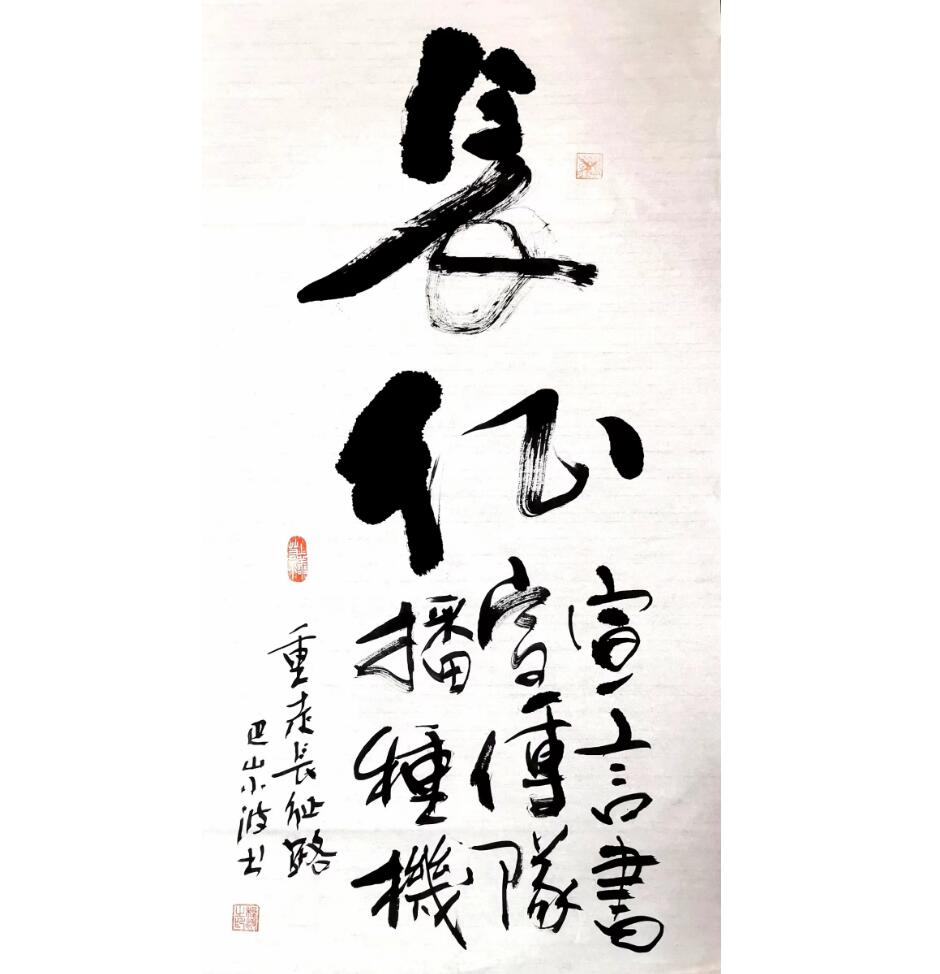 長征
宣言書
宣傳隊
播種機
重走長征路
巴山小波书